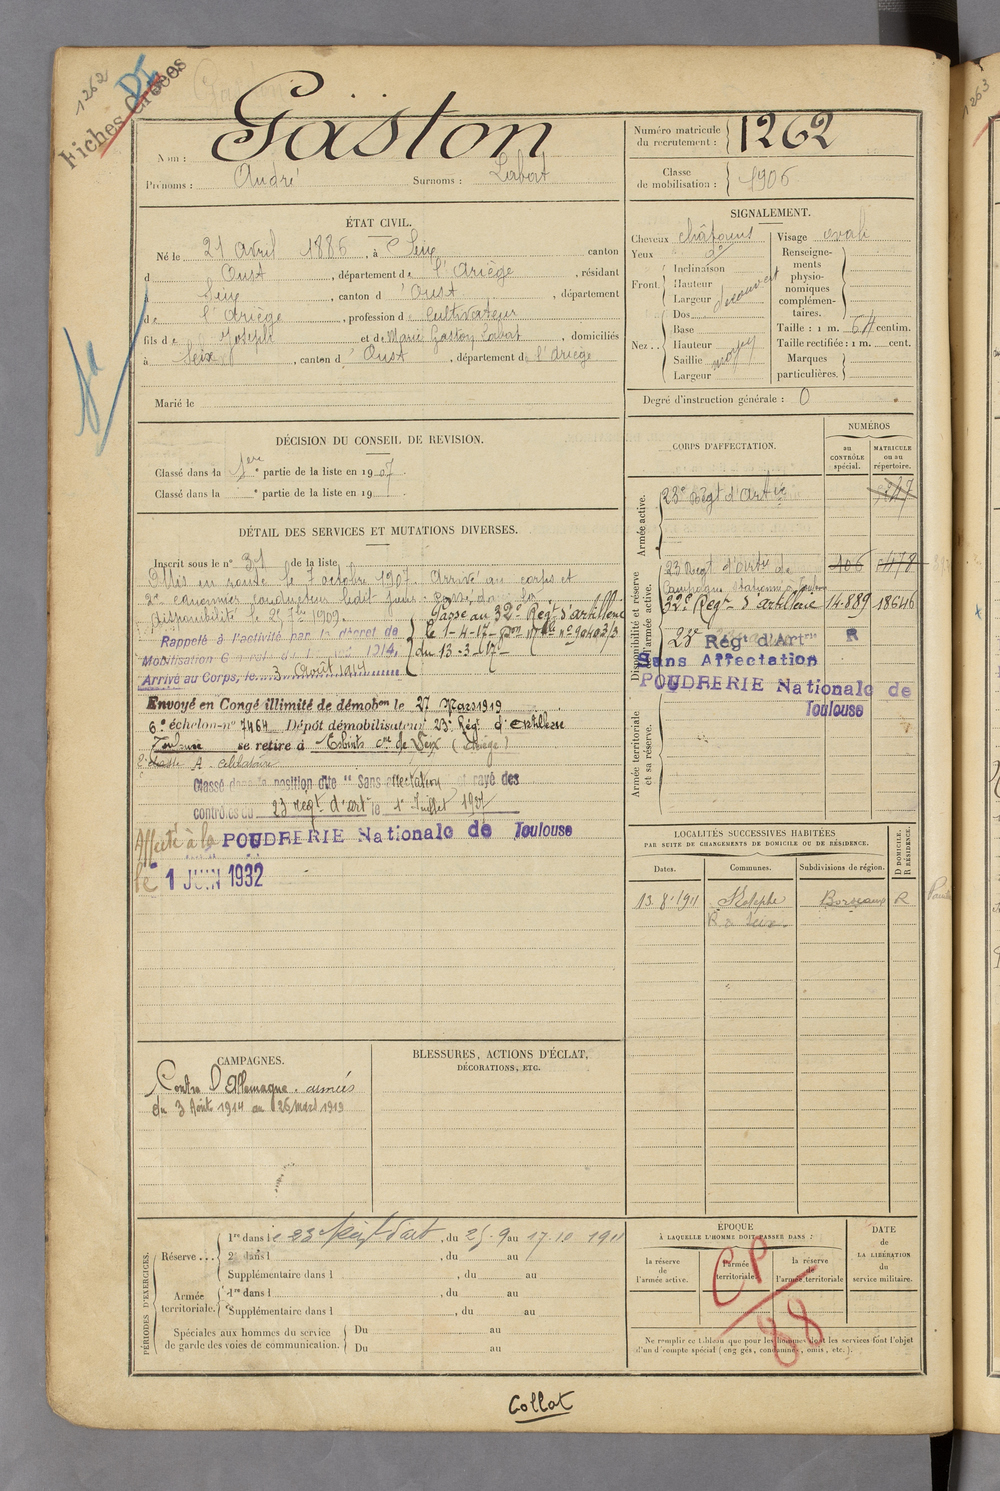 1262
DI
Fiches Créées
Nom : Gaston
Prénoms : André Surnoms : Labat
Numéro matricule du recrutement : 1262
Classe de mobilisation : 1906
ÉTAT CIVIL.
Né le 21 avril 1886, à Seix canton
d Oust, département de l'Ariège, résidant
Seix, canton d'Oust, département
de l'Ariège, profession de Cultivateur
fils de Joseph et de Marie Gaston Labat, domiciliés
à Seix, canton d'Oust, département de l'Ariège
Marié le
SIGNALEMENT.
Cheveux châtains
Yeux do
Front
Inclinaison
Hauteur
Largeur
découvert
Nez
Dos
Base
Hauteur
Saillie
Largeur
moyen
Visage ovale
Renseignements physionomiques complémentaires.
Taille : 1 m. 64 centim.
Taille rectifiée : 1 m. cent.
Marques particulières.
Degré d'instruction générale : 0
DÉCISION DU CONSEIL DE REVISION.
Classé dans la 1ere partie de la liste en 1907.
Classé dans la e partie de la liste en 19
DÉTAIL DES SERVICES ET MUTATIONS DIVERSES.
Inscrit sous le n° 371 de la liste
Mis en route le 7 octobre 1907. Arrivé au corps et
2e canonnier conducteur ledit jour. Passé dans la
disponibilité le 25 7bre 1909.
Passé au 32e Régt d'artillerie
le 1-4-17
du 13-3-17
Rappelé à l'activité par le décret de
Mobilisation Générale du 1er août 1914,
Arrivé au Corps, le 3 Août 1914
Envoyé en Congé illimité de démobon le 27 Mars 1919
6e échelon n° 7464 Dépôt démobilisateur 23e Régt d'Artillerie
Toulouse se retire à Esbints cne de Seix (Ariège)
Classé dans la position dite "Sans affectation" et rayé des
contrôles du 23 régt d'arti le 1er Juillet 1927
Affecté à la POUDRERIE Nationale de Toulouse
le 1 JUIN 1932
CORPS D'AFFECTATION.
NUMÉROS
au CONTRÔLE spécial.
MATRICULE ou au répertoire.
Armée active.
23e Régt d'Artie
Disponibilité et réserve de l'armée active.
23 Regt d'artie de 406 1478
Campagne stationné à Toulouse
32e Régt d'artillerie 14.889 18646
23e Rég d'Artie R
Sans Affectation
POUDRERIE Nationale de
Toulouse
Armée territoriale et sa réserve.
LOCALITÉS SUCCESSIVES HABITÉES
PAR SUITE DE CHANGEMENTS DE DOMICILE OU DE RÉSIDENCE.
Dates. Communes. Subdivisions de région. D DOMICILE. R RÉSIDENCE.
13-8-1911 Bordeaux R
R à Seix.
CAMPAGNES.
Contre l'Allemagne. armées
du 3 Août 1914 au 26 mars 1919
BLESSURES, ACTIONS D'ÉCLAT,
DÉCORATIONS, ETC.
PÉRIODES D'EXERCICES.
Réserve...
1re dans le 23 Régt d'art, du 25.9 au 17.10 1911
2e dans l, du au
Supplémentaire dans l, du au
Armée territoriale.
1re dans l, du au
Supplémentaire dans l, du au
Spéciales aux hommes du service de garde des voies de communication.
Du au
Du au
ÉPOQUE
À LAQUELLE L'HOMME DOIT PASSER DANS :
la réserve de l'armée active.
l'armée territoriale.
la réserve de l'armée territoriale
DATE de LA LIBÉRATION du service militaire.
CP
88
Ne remplir ce tableau que pour les hommes dont les services font l'objet
d'un décompte spécial (engagés, condamnés, omis, etc.).
Collat